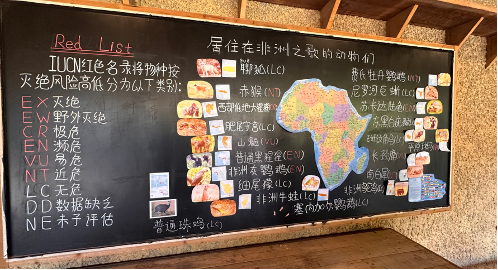 Red List
IUCN红色名录将物种按
灭绝风险高低分为以下类别:
EX 灭绝
EW 野外灭绝
CR 极危
EN 濒危
VU 易危
NT 近危
LC 无危
DD 数据缺乏
NE 未予评估
居住在非洲之歌的动物们
聊狐(LC)
赤猴(NT)
西部低地大猩猩
肥尾守宫(LC)
山魈(VU)
普通黑猩猩(EN)
非洲灰鹦鹉(EN)
细尾獴(LC)
非洲牛蛙(LC)
塞内加尔鹦鹉(LC)
普通珠鸡(LC)
费氏牡丹鹦鹉(NT)
尼罗河巨蜥(LC)
苏卡达陆龟(EN)